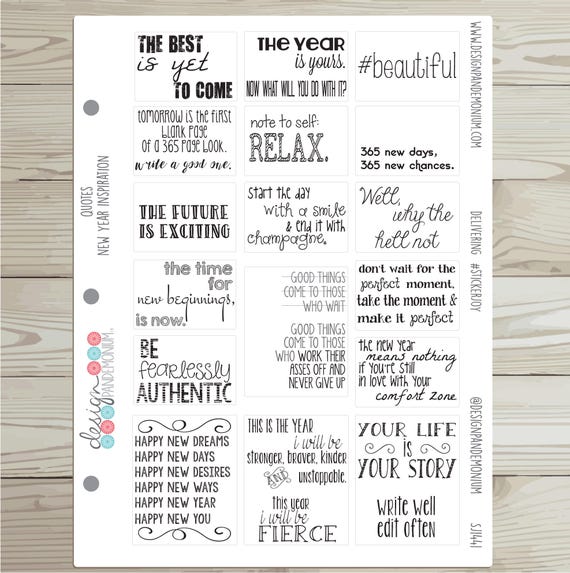 QUOTES
NEW YEAR INSPIRATION
design
PANDEMONIUM
THE BEST
is yet
TO COME
THE YEAR
is yours.
NOW WHAT WILL YOU DO WITH IT?
#beautiful
tomorrow is the first
blank page
of a 365 page book.
write a good one.
note to self:
RELAX.
365 new days,
365 new chances.
THE FUTURE
IS EXCITING
Start the day
with a smile
& end it with
champagne.
Well,
why the
hell not
the time
for
new beginnings,
is now.
GOOD THINGS
COME TO THOSE
WHO WAIT
GOOD THINGS
COME TO THOSE
WHO WORK THEIR
ASSES OFF AND
NEVER GIVE UP
don't wait for the
perfect moment,
take the moment &
make it perfect
BE
fearlessly
AUTHENTIC
the new year
means nothing
if you're still
in love with your
comfort zone
HAPPY NEW DREAMS
HAPPY NEW DAYS
HAPPY NEW DESIRES
HAPPY NEW WAYS
HAPPY NEW YEAR
HAPPY NEW YOU
THIS IS THE YEAR
i will be
stronger, braver, kinder
AND unstoppable.
this year
i will be
FIERCE
YOUR LIFE
is
YOUR STORY
write well
edit often
WWW.DESIGNPANDEMONIUM.COM
DELIVERING #STICKERJOY
@DESIGNPANDEMONIUM
SJ1441